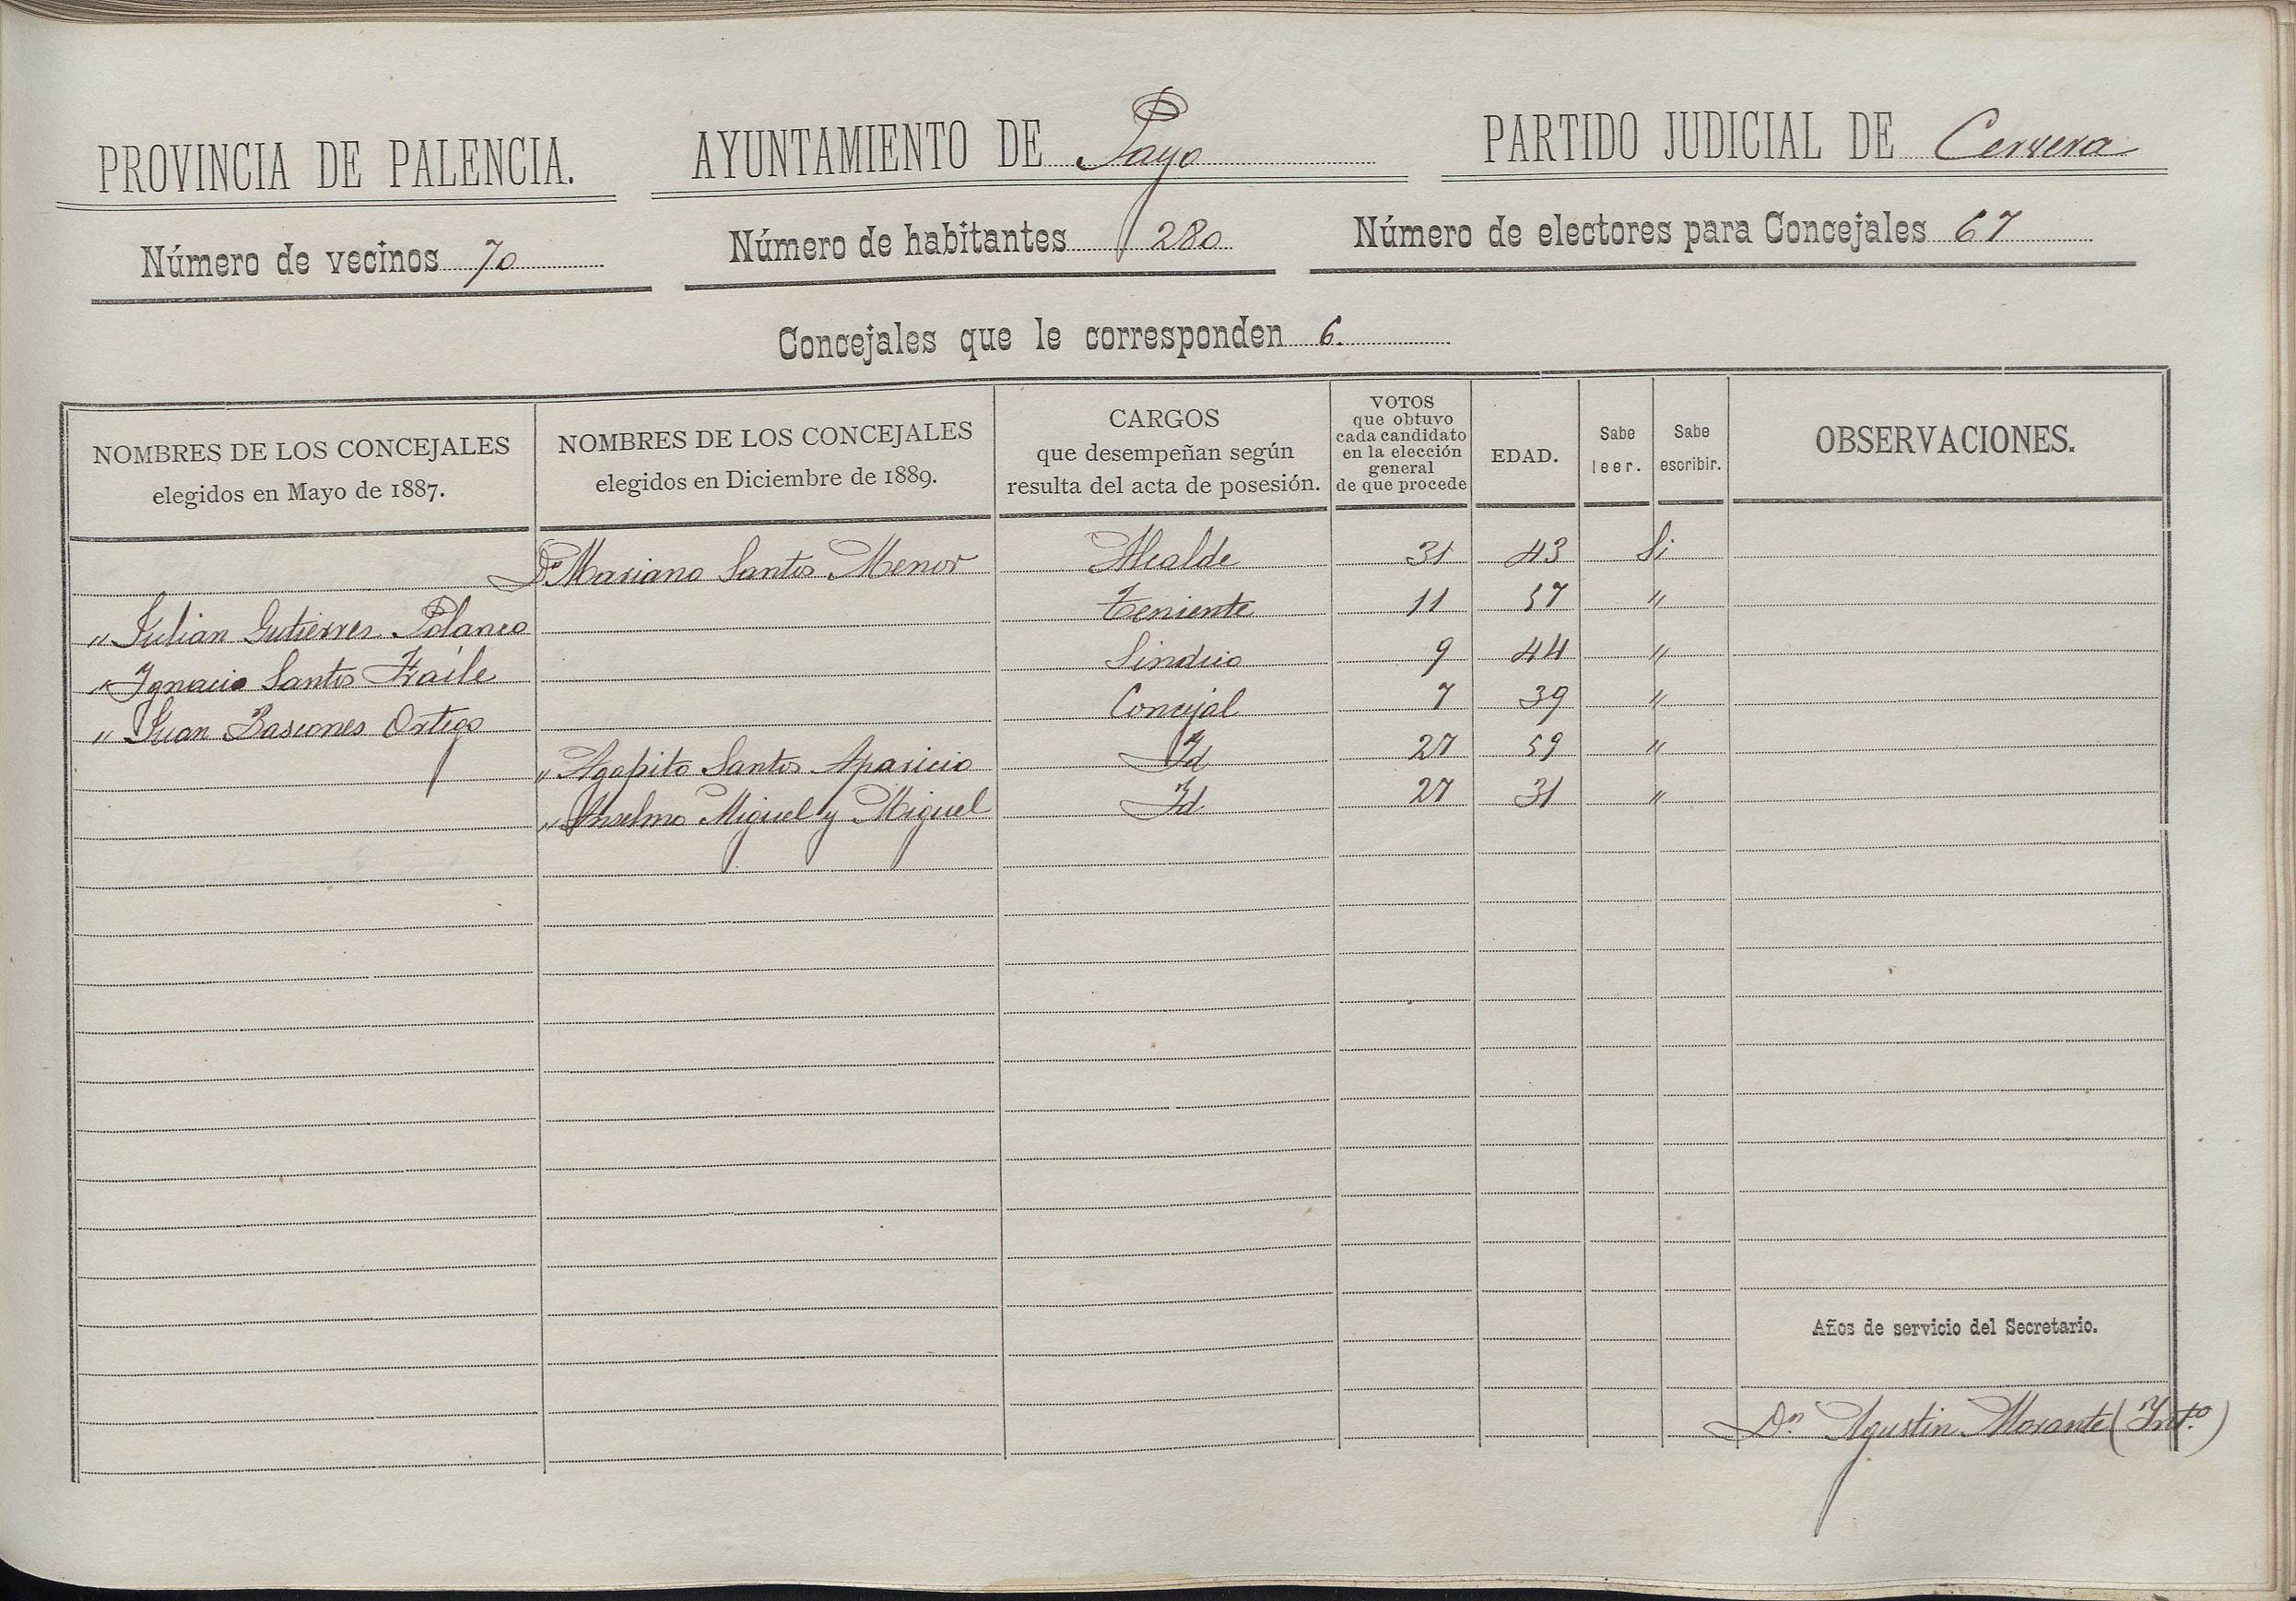 PROVINCIA DE PALENCIA. AYUNTAMIENTO DE Payo PARTIDO JUDICIAL DE Cervera
Número de vecinos 70 Número de habitantes 280 Número de electores para Concejales 67
Concejales que le corresponden 6.
NOMBRES DE LOS CONCEJALES elegidos en Mayo de 1887. NOMBRES DE LOS CONCEJALES elegidos en Diciembre de 1889. CARGOS que desempeñan según resulta del acta de posesión. VOTOS que obtuvo cada candidato en la elección general de que procede EDAD. Sabe leer. Sabe escribir. OBSERVACIONES.
Dn Mariano Santos Menor Alcalde 31 43 Si
" Julian Gutierres Polanco Teniente 11 57 "
" Ignacio Santos Fraile Sindico 9 44 "
" Juan Bascones Ortega Concejal 7 39 "
" Agapito Santos Aparicio Id 27 59 "
" Anselmo Miguel y Miguel Id 27 31 "
Años de servicio del Secretario.
Dn. Agustin Morante (Int.o)